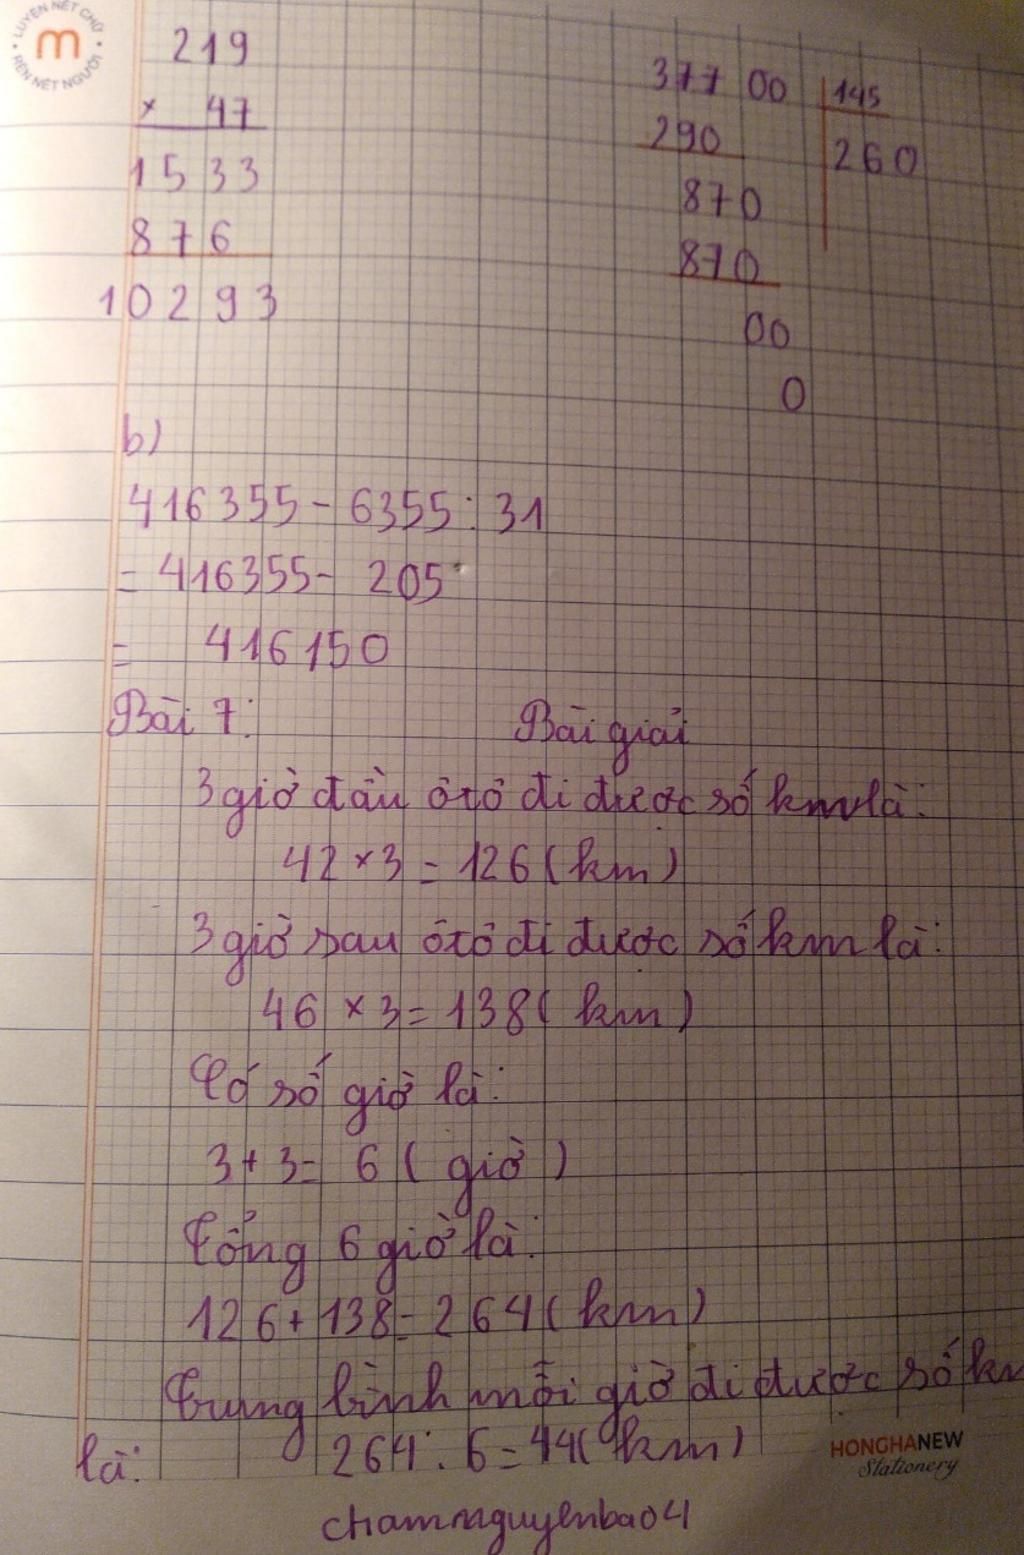 LUYỆN NÉT CHỮ
m
RÈN NẾT NGƯỜI
219
× 47
1533
876
10293
37700 145
290 260
870
870
00
0
b)
416355 - 6355 : 31
= 416355 - 205
= 416150
Bài 7: Bài giải
3 giờ đầu ôtô đi được số km là:
42 × 3 = 126 (km)
3 giờ sau ôtô đi được số km là:
46 × 3 = 138 (km)
Có số giờ là:
3 + 3 = 6 (giờ)
Tổng 6 giờ là:
126 + 138 = 264 (km)
Trung bình mỗi giờ đi được số km
là: 264 : 6 = 44 (km)
HONGHANEW
Stationery
chamnguyenbao4